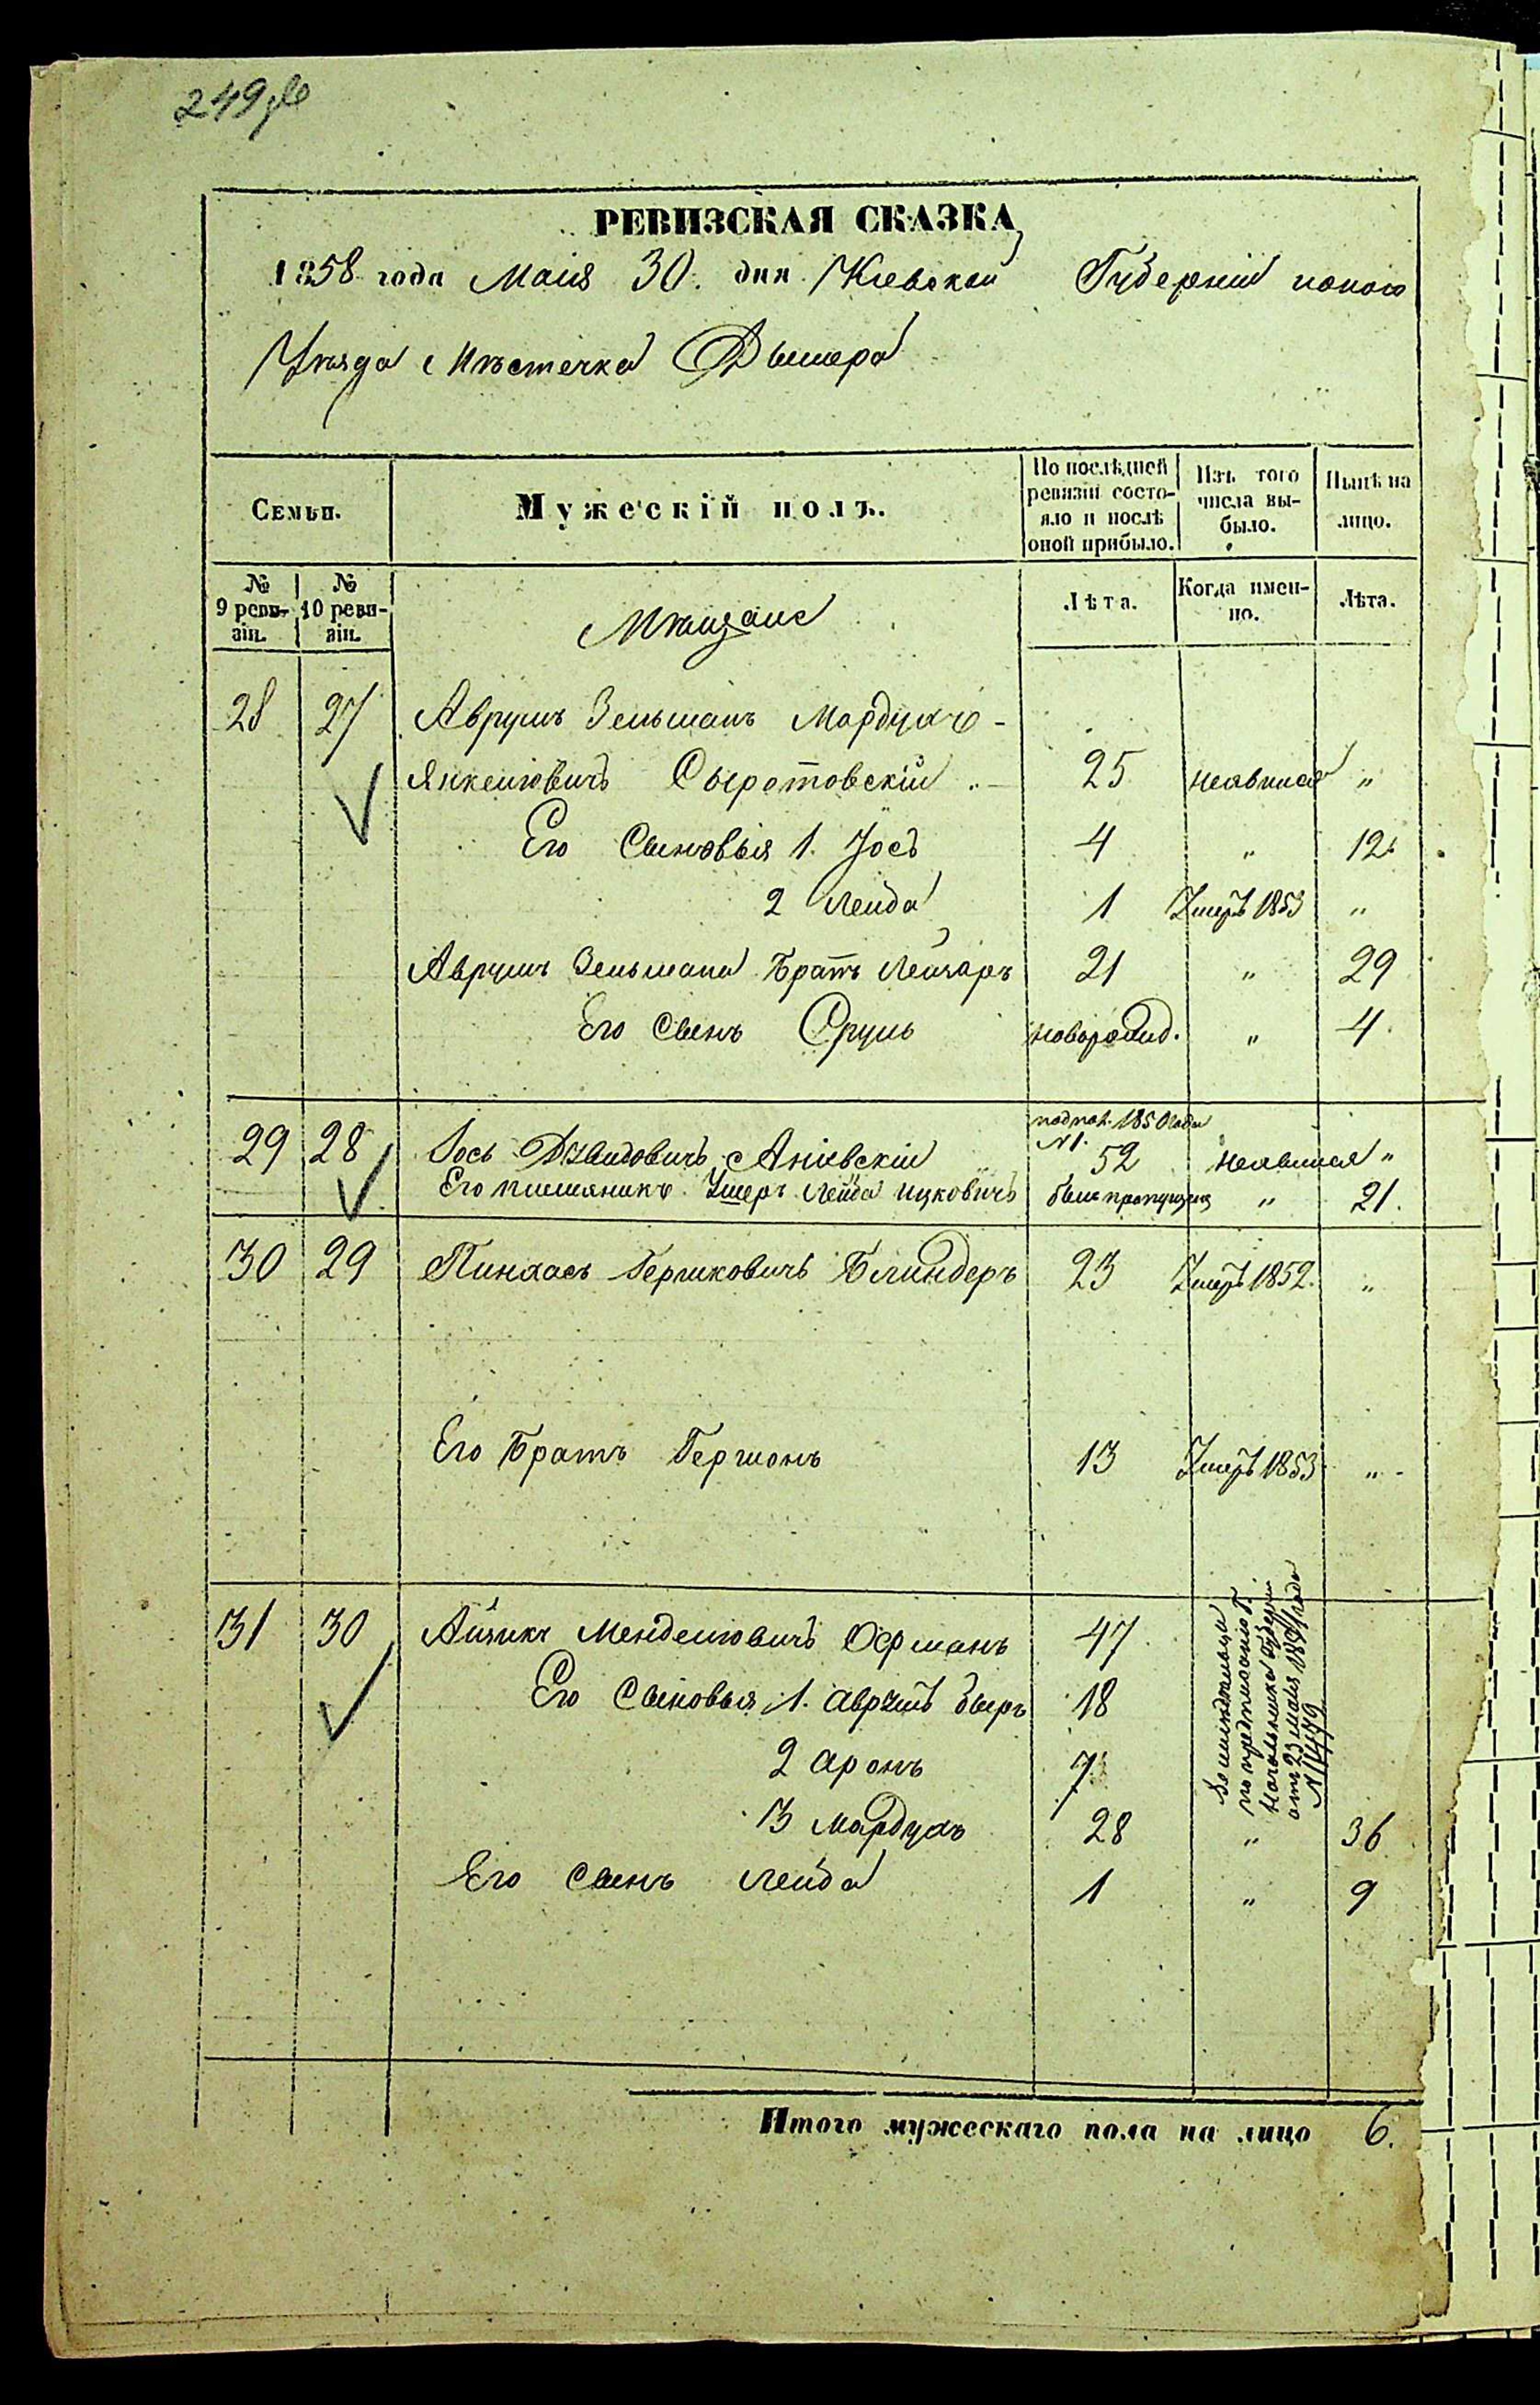 249
РЕВИЗСКАЯ СКАЗКА
1858 года Маія 30. дня Кіевской Губерніи
Уѣзда Мѣстечка Дымера
Семьи. Мужескій полъ. По послѣдней ревизіи состояло и послѣ оной прибыло. Изъ того числа выбыло. Нынѣ на лицо.
№ 9 ревизіи. № 10 ревизіи. Мѣщане Лѣта. Когда именно. Лѣта.
28 27 Аврумъ Зельманъ Мордухъ-
Янкелювичъ Сыротовскій 25 неявился "
Его Сыновья 1. Іосъ 4 " 12
2 Лейба 1 Умеръ 1853 "
Аврумъ Зельмана Братъ Лейзаръ 21 " 29
Его Сынъ Сруль новорожд. " 4
29 28 Іось Аніевскій 1850 года №1. 52 неявился "
Его племяникъ Ушеръ Лейба Ицковичъ былъ пропущенъ " 21.
30 29 Пинхасъ Гершковичъ Блиндеръ 23 Умеръ 1852. "
Его Братъ Гершонъ 13 Умеръ 1853 "
31 30 Айзикъ Менделювичъ 47
Его Сыновья 1. Аврумъ Беръ 18
2 Аронъ 7
3 Мордухъ 28 " 36
Его Сынъ Лейба 1 " 9
по предписанію Г.
Начальника Губерніи
отъ 23 Маія
Итого мужескаго пола на лицо 6.